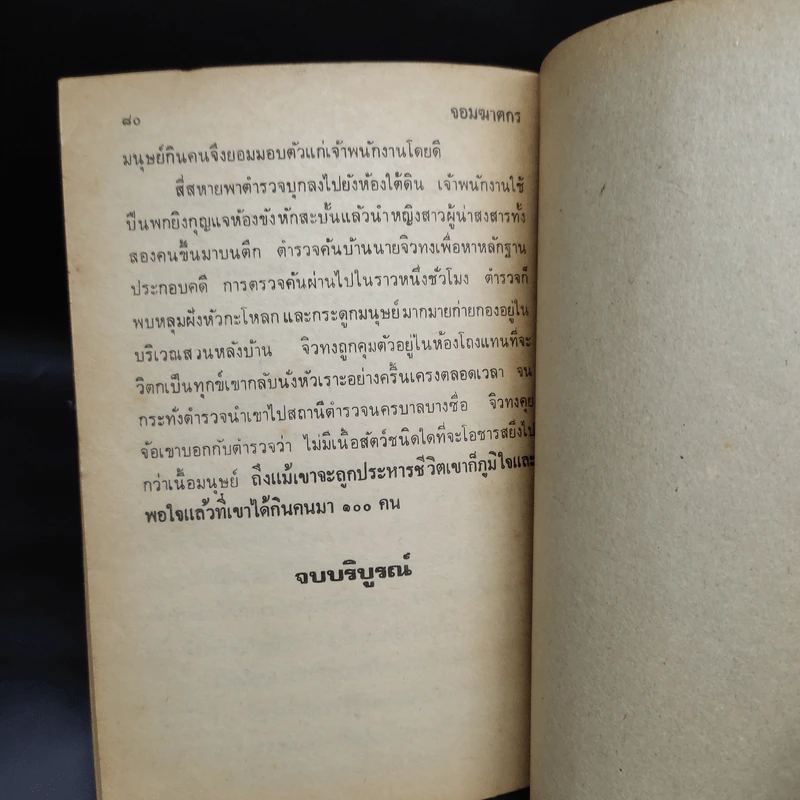 ๘๐ จอมฆาตกร
มนุษย์กินคนจึงยอมมอบตัวแก่เจ้าพนักงานโดยดี
สี่สหายพาตำรวจบุกลงไปยังห้องใต้ดิน เจ้าพนักงานใช้
ปืนพกยิงกุญแจห้องขังหักสะบั้นแล้วนำหญิงสาวผู้น่าสงสารทั้ง
สองคนขึ้นมาบนตึก ตำรวจค้นบ้านนายจิวทงเพื่อหาหลักฐาน
ประกอบคดี การตรวจค้นผ่านไปในราวหนึ่งชั่วโมง ตำรวจก็
พบหลุมฝังหัวกะโหลก และกระดูกมนุษย์มากมายก่ายกองอยู่ใน
บริเวณสวนหลังบ้าน จิวทงถูกคุมตัวอยู่ในห้องโถงแทนที่จะ
วิตกเป็นทุกข์เขากลับนั่งหัวเราะอย่างครื้นเครงตลอดเวลา จน
กระทั่งตำรวจนำเขาไปสถานีตำรวจนครบาลบางซื่อ จิวทงคุย
จ้อเขาบอกกับตำรวจว่า ไม่มีเนื้อสัตว์ชนิดใดที่จะโอชารสยิ่งไป
กว่าเนื้อมนุษย์ ถึงแม้เขาจะถูกประหารชีวิตเขาก็ภูมิใจและ
พอใจแล้วที่เขาได้กินคนมา ๑๐๐ คน
จบบริบูรณ์